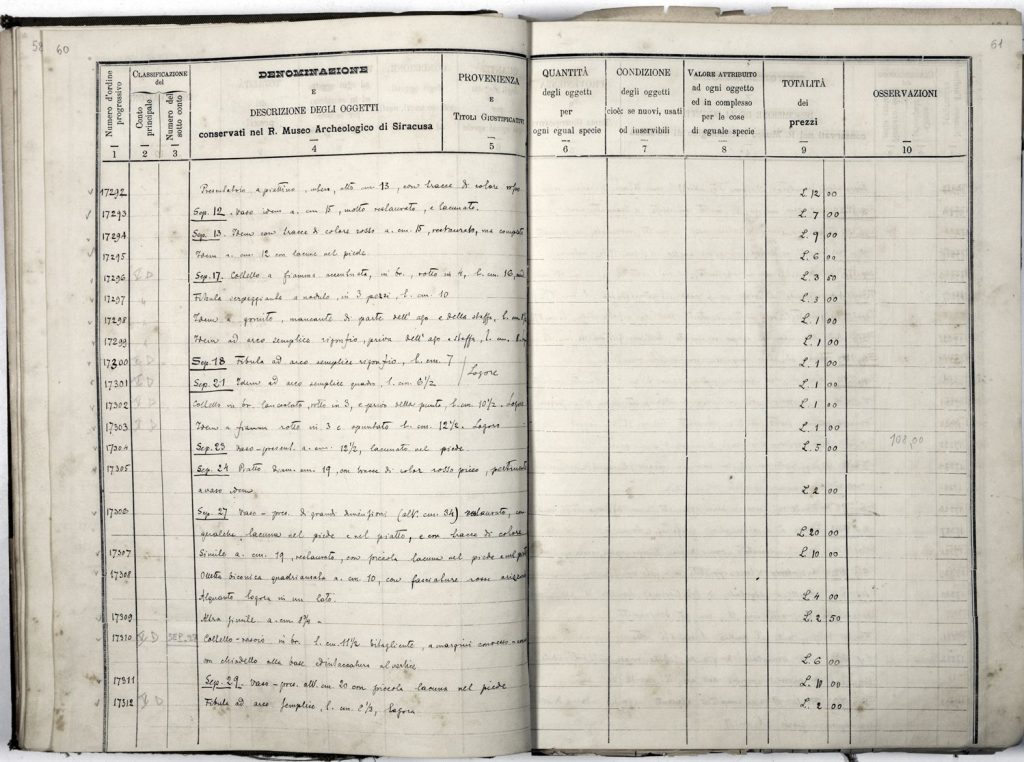 58 60
61
Numero d'ordine progressivo
CLASSIFICAZIONE del
Conto principale
Numero del sotto conto
DENOMINAZIONE
E
DESCRIZIONE DEGLI OGGETTI
conservati nel R. Museo Archeologico di Siracusa
PROVENIENZA
E
TITOLI GIUSTIFICATIVI
QUANTITÀ
degli oggetti
per
ogni egual specie
CONDIZIONE
degli oggetti
cioè: se nuovi, usati
od inservibili
VALORE ATTRIBUITO
ad ogni oggetto
ed in complesso
per le cose
di eguale specie
TOTALITÀ
dei
prezzi
OSSERVAZIONI
1 2 3 4 5 6 7 8 9 10
17292 Presentatoio a piattino, alto cm 13, con tracce di colore L. 12 00
17293 Sep. 12. Vaso idem a. cm. 15, molto restaurato, e lacunato. L. 7 00
17294 Sep. 13. Idem con tracce di colore rosso a. cm. 15, restaurato, ma completo L. 9 00
17295 Idem a. cm. 12 con lacune nel piede. L. 6 00
17296 D Sep. 17. Coltello a fiamma in br., rotto in 4, l. cm. 16, L. 3 50
17297 Fibula serpeggiante a nodulo, in 3 pezzi, l. cm. 10 L. 3 00
17298 Idem a gomito, mancante di parte dell'ago e della staffa, l. cm. L. 1 00
17299 Idem ad arco semplice rigonfio, priva dell'ago e staffa, l. cm. L. 1 00
17300 D Sep. 18 Fibula ad arco semplice rigonfio, l. cm. 7 L. 1 00
Logore
17301 D Sep. 21 Idem ad arco semplice quadro, l. cm. 6 1/2 L. 1 00
17302 D Coltello in br. lanceolato, rotto in 3, e privo della punta, l. cm. 10 1/2. Logore L. 1 00
17303 D Idem a fiamma rotto in 3 e spuntato l. cm. 12 1/2. Logoro L. 1 00
17304 Sep. 23 Vaso-present. a. cm. 12 1/2, lacunato nel piede. L. 5 00
108,00
17305 Sep. 24 Piatto diam. cm. 19, con tracce di color rosso
a vaso idem L. 2 00
17306 Sep. 27 Vaso-pres. di grandi dimensioni (alt. cm. 34) restaurato, con
qualche lacuna nel piede e nel piatto, e con tracce di colore L. 20 00
17307 Simile a. cm. 19, restaurato, con piccola lacuna nel piede e nel L. 10 00
17308 Olletta biconica quadriansata a. cm. 10, con fasciature rosse
Alquanto logora in un lato. L. 4 00
17309 Altra simile a. cm 8 3/4. L. 2 50
17310 D SEP. 27 Coltello-rasoio in br. l. cm. 11 1/2 bitagliente, a margini
con chiodello alla base ed intaccatura al vertice L. 6 00
17311 Sep. 29. Vaso-pres. alt. cm. 20 con piccola lacuna nel piede L. 10 00
17312 D Fibula ad arco semplice, l. cm. 2 1/3, logora L. 2 00